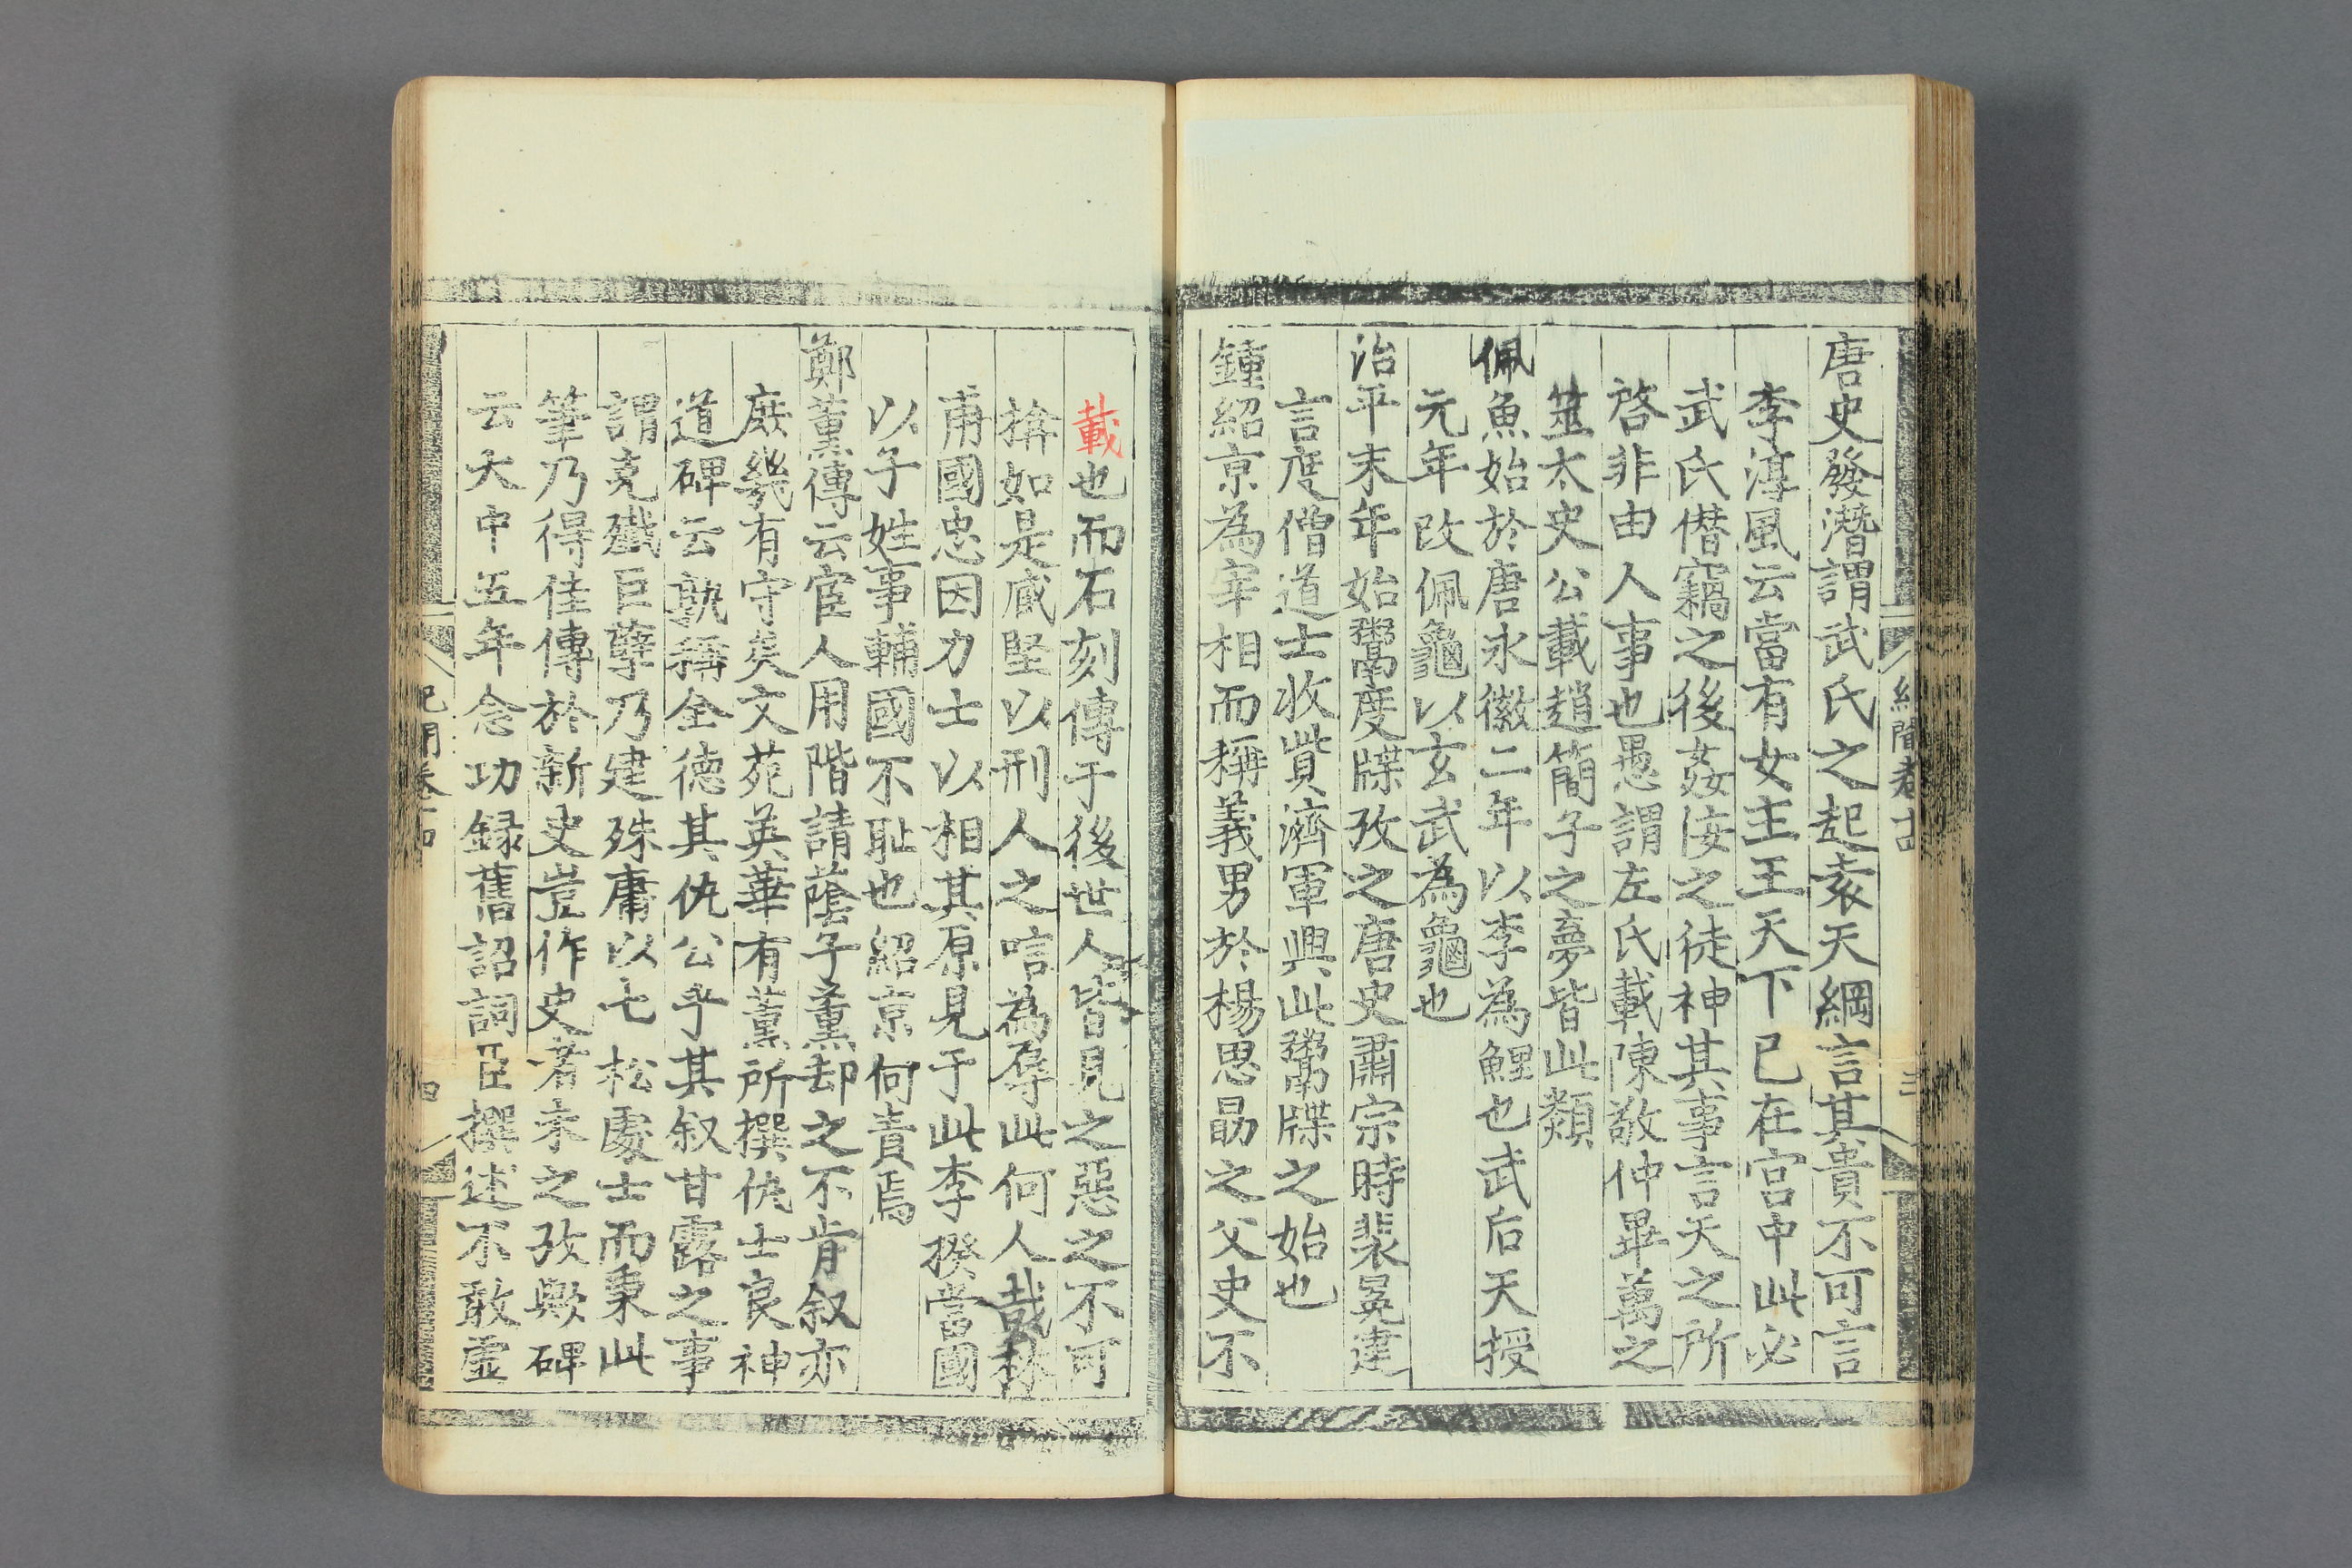 唐史發潛謂武氏之起袁天綱言其貴不可言
李淳風云當有女主王天下已在宮中此必
武氏僣竊之後姦佞之徒神其事言天之所
啓非由人事也愚謂左氏載陳敬仲畢萬之
筮太史公載趙簡子之夢皆此類
佩魚始於唐永徽二年以李為鯉也武后天授
元年改佩龜以玄武為龜也
治平末年始鬻度牒攷之唐史肅宗時裴冕建
言度僧道士收貲濟軍興此鬻牒之始也
鍾紹京為宰相而稱義男於楊思勗之父史不
載也而石刻傳于後世人皆見之惡之不可
揜如是臧堅以刑人之唁為辱此何人哉林
甫國忠因力士以相其原見于此李揆當國
以子姓事輔國不恥也紹京何責焉
鄭薰傳云宦人用階請蔭子薰却之不肯叙亦
庶幾有守矣文苑英華有薰所撰仇士良神
道碑云孰稱全德其仇公乎其叙甘露之事
謂克殲巨孽乃建殊庸以七松處士而秉此
筆乃得佳傳於新史豈作史者未之攷歟碑
云大中五年念功録舊詔詞臣撰述不敢虛
紀聞卷十四
四
紀聞卷十四
三